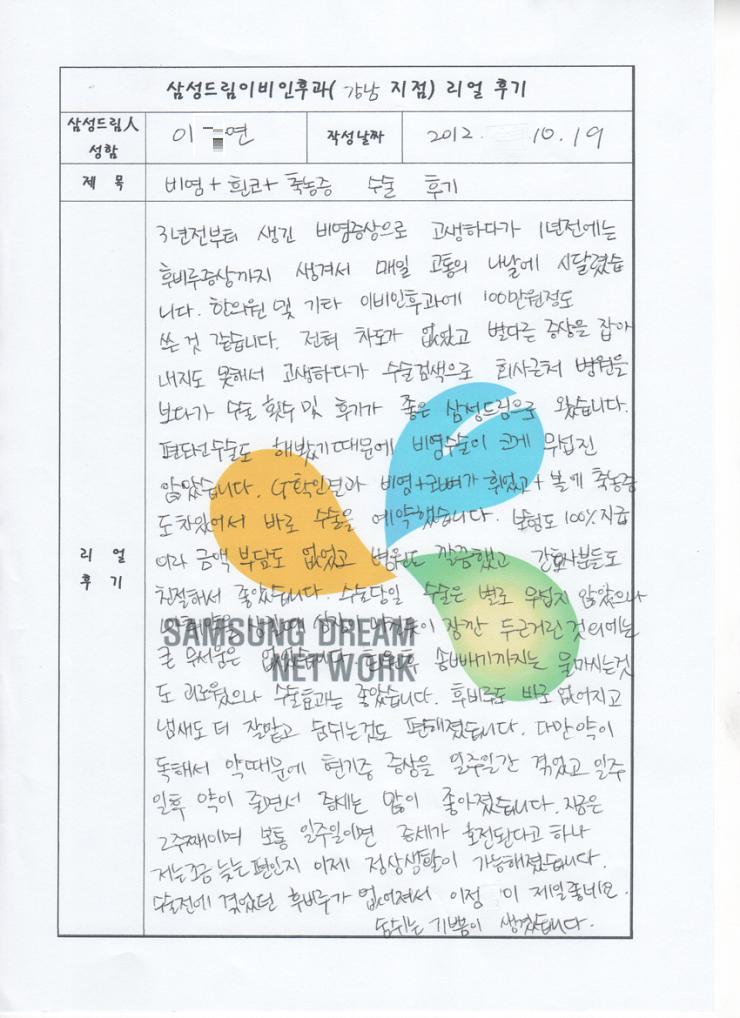 삼성드림이비인후과(강남 지점) 리얼 후기
삼성드림人 성함
이 연
작성날짜
2012. 10. 19
제 목
비염 + 휜코 + 축농증 수술 후기
리 얼
후 기
3년전부터 생긴 비염증상으로 고생하다가 1년전에는
후비루증상까지 생겨서 매일 고통의 나날에 시달렸습
니다. 한의원 및 기타 이비인후과에 100만원정도
쓴 것 같습니다. 전혀 차도가 없었고 별다른 증상을 잡아
내지도 못해서 고생하다가 수술검색으로 회사근처 병원을
보다가 수술 횟수 및 후기가 좋은 삼성드림으로 왔습니다.
편도선수술도 해봤기때문에 비염수술이 크게 무섭진
않았습니다. CT확인결과 비염+코뼈가 휘었고+볼에 축농증
도 차있어서 바로 수술을 예약했습니다. 보험도 100%지급
이라 금액 부담도 없었고 병원도 깔끔했고 간호사분들도
친절해서 좋았습니다. 수술당일 수술은 별로 무섭지 않았으나
잠깐 두근거린 것 외에는
큰 무서움은 없었습니다. 솜빼기까지는 물마시는것
도 괴로웠으나 수술효과는 좋았습니다. 후비루도 바로 없어지고
냄새도 더 잘맡고 숨쉬는것도 편해졌습니다. 다만 약이
독해서 약때문에 현기증 증상을 일주일간 겪었고 일주
일후 약이 줄면서 증세는 많이 좋아졌습니다. 지금은
2주째이며 보통 일주일이면 증세가 호전된다고 하나
저는 조금 늦는 편인지 이제 정상생활이 가능해졌습니다.
수술전에 겪었던 후비루가 없어져서 이점 이 제일좋네요.
숨쉬는 기쁨이 생겼습니다.
SAMSUNG DREAM
NETWORK